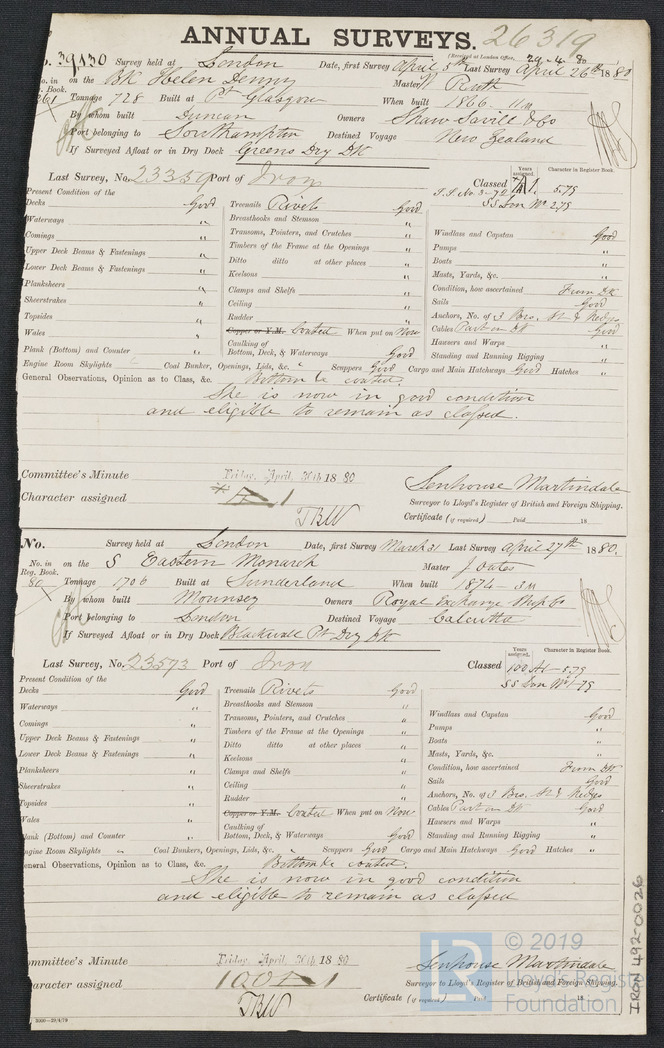 ANNUAL SURVEYS. 26319
(Received at London Office, 29-4-80
No. 39130 Survey held at London Date, first Survey April 5th Last Survey April 26th 1880
No. in on the Bk Helen Denny Master W Ruth
Reg. Book.
261 Tonnage 728 Built at Pt Glasgow When built 1866. 11m
By whom built Duncan Owners Shaw Savill & Co
Port belonging to Southampton Destined Voyage New Zealand
If Surveyed Afloat or in Dry Dock Greens Dry Dk
Last Survey, No. 23359 Port of Iron Classed A1. 5.79
Years assigned. Character in Register Book.
SS Lon No 2.79
Present Condition of the
Decks Good Treenails Rivets Good
Waterways " Breasthooks and Stemson "
Comings " Transoms, Pointers, and Crutches " Windlass and Capstan Good
Upper Deck Beams & Fastenings " Timbers of the Frame at the Openings " Pumps "
Lower Deck Beams & Fastenings " Ditto ditto at other places " Boats "
Planksheers " Keelsons " Masts, Yards, &c. "
Sheerstrakes " Clamps and Shelfs " Condition, how ascertained From Dk
Topsides " Ceiling " Sails Good
Wales " Rudder " Anchors, No. of 3 Bro, St & Kedges
Plank (Bottom) and Counter " Copper or Y.M. Coated When put on Now Cables Part on Dk Good
Caulking of Bottom, Deck, & Waterways Good Hawsers and Warps "
Standing and Running Rigging "
Engine Room Skylights Coal Bunker, Openings, Lids, &c. " Scuppers Good Cargo and Main Hatchways Good Hatches "
General Observations, Opinion as to Class, &c. Bottom &c coated.
She is now in good condition
and eligible to remain as classed.
Committee's Minute Friday, April 30th 1880
Character assigned A1
TBW
Senhouse Martindale
Surveyor to Lloyd's Register of British and Foreign Shipping.
Certificate (if required) Paid 18
No. Survey held at London Date, first Survey March 31 Last Survey April 27th 1880.
No. in on the S Eastern Monarch Master J Oates
Reg. Book.
80 Tonnage 1706 Built at Sunderland When built 1874-3m
By whom built Mounsey Owners Royal Exchange Ship Co
Port belonging to London Destined Voyage Calcutta
If Surveyed Afloat or in Dry Dock Blackwall Pt Dry Dk
Last Survey, No. 23573 Port of Iron Classed 100A1-5.79
Years assigned. Character in Register Book.
SS Lon No 1-79
Present Condition of the
Decks Good Treenails Rivets Good
Waterways " Breasthooks and Stemson "
Comings " Transoms, Pointers, and Crutches " Windlass and Capstan Good
Upper Deck Beams & Fastenings " Timbers of the Frame at the Openings " Pumps "
Lower Deck Beams & Fastenings " Ditto ditto at other places " Boats "
Planksheers " Keelsons " Masts, Yards, &c. "
Sheerstrakes " Clamps and Shelfs " Condition, how ascertained From Dk
Topsides " Ceiling " Sails Good
Wales " Rudder " Anchors, No. of 3 Bro. St & Kedges
Plank (Bottom) and Counter " Copper or Y.M. Coated When put on Now Cables Part on Dk Good
Caulking of Bottom, Deck, & Waterways Good Hawsers and Warps "
Standing and Running Rigging "
Engine Room Skylights " Coal Bunkers, Openings, Lids, &c. " Scuppers Good Cargo and Main Hatchways Good Hatches "
General Observations, Opinion as to Class, &c. Bottom &c coated.
She is now in good condition
and eligible to remain as classed
Committee's Minute Friday, April 30th 1880
Character assigned 100A1
TBW
Senhouse Martindale
Surveyor to Lloyd's Register of British and Foreign Shipping.
Certificate (if required) Paid 18
3000-29/4/79
IRON 492-0026
LR © 2019
Lloyd's Register
Foundation